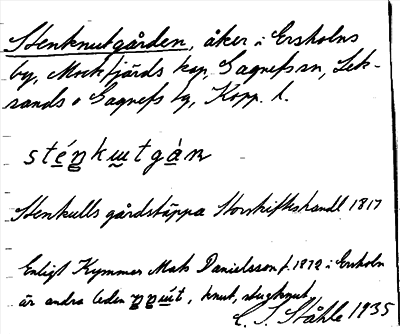 Stenknutgården, åker i Ersholns
by, Mockfjärds kap, Gagnefs sn, Lek-
sands o Gagnefs tg, Kopp. l.
sténkɯtgàn
Stenkulls gårdstäppa Storskifteshandl 1817
Enligt Kymmer Mats Danielsson f. 1872 i Ersholn
är andra leden, knut, stugknut
C. I. Ståhle 1935